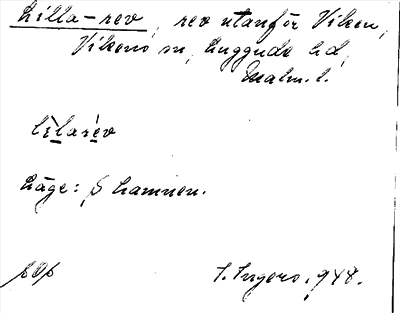 Lilla-rev, rev utanför Viken,
Vikens sn, Luggude hd,
Malm. l.
lìlarév
Läge: S hamnen.
I. Ingers, 1948.